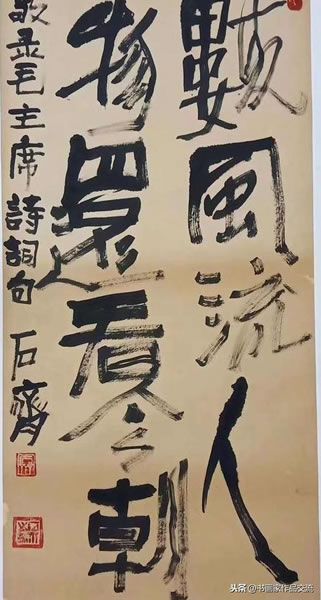 數風流人
物還看今朝
敬录毛主席詩詞句 石齊
头条@书画家作品交流